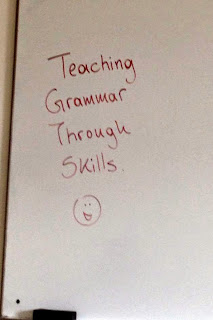 Teaching
Grammar
Through
Skills.